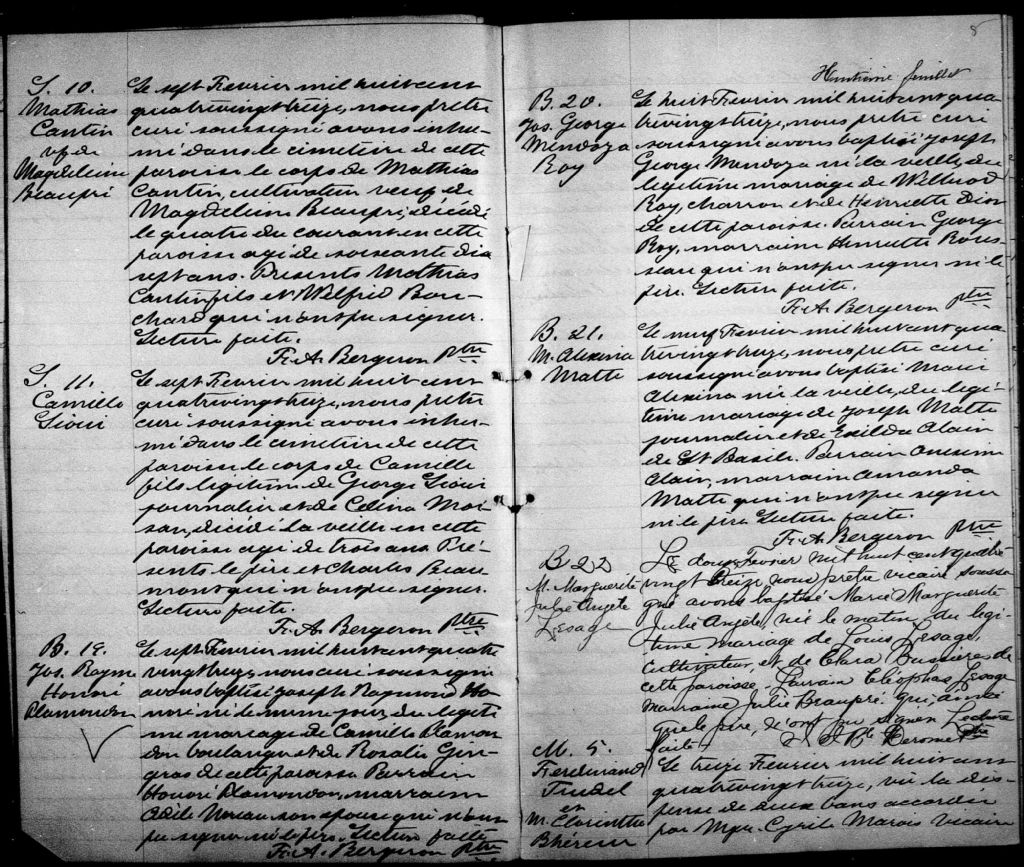 S. 10.
Mathias
Cantin
vf de
Magdeleine
Beaupré
Le sept Fevrier mil huit cent
quatrevingt treize, nous pretre
curé soussigné avons inhu-
mé dans le cimetiere de cette
paroisse le corps de Mathias
Cantin, cultivateur veuf de
Magdeleine Beaupré, décédé
le quatre du courant en cette
paroisse agé de soixante dix
sept ans. Presents Mathias
Cantin fils et Wilfrid Bou-
chard qui n'ont pu signer.
Lecture faite.
F. A. Bergeron Ptre
S. 11.
Camille
Sioui
Le sept Fevrier mil huit cent
quatrevingt treize, nous pretre
curé soussigné avons inhu-
mé dans le cimetiere de cette
paroisse le corps de Camille
fils legitime de George Sioui
journalier et de Celina Moi-
san, décédé la veille en cette
paroisse agé de trois ans. Pré-
sents le père et Charles Beau-
mont qui n'ont pu signer.
Lecture faite.
F. A. Bergeron Ptre
B. 19.
Jos. Raym
Honoré
Plamondon
Le sept Fevrier mil huit cent quatre
vingt treize, nous curé soussigné
avons baptisé Joseph Raymond Ho-
noré né le meme jour, du legiti
me mariage de Camille Plamon
don boulanger et de Rosalie Gin-
gras de cette paroisse Parrain
Honoré Plamondon, marraine
Adèle son epouse qui n'ont
pu signer ni le père. Lecture faite
F. A. Bergeron Ptre
8
Huitième feuillet
B. 20.
Jos. George
Mendoza
Roy
Le huit Fevrier mil huit cent qua
trevingt treize, nous pretre curé
soussigné avons baptisé Joseph
George Mendoza né la veille, du
legitime mariage de Wilbrod
Roy, charron et de Henriette Dion
de cette paroisse. Parrain George
Roy, marraine Henriette Rous-
seau qui n'ont pu signer ni le
père. Lecture faite.
F. A. Bergeron Ptre
B. 21.
M. Alexina
Matte
Le neuf Fevrier mil huit cent qua
trevingt treize, nous pretre curé
soussigné avons baptisé Marie
Alexina née la veille, du legi-
time mariage de Joseph Matte
journalier et de Exilda Alain
de St Basile. Parrain Onesime
Alain, marraine Amanda
Matte qui n'ont pu signer
ni le père Lecture faite.
F. A. Bergeron Ptre
B 22
M. Marguerite
Julie Angèle
Lesage
Le douze Fevrier mil huit cent quatre
vingt treize nous prêtre vicaire soussi
gné avons baptisé Marie Marguerite
Julie Angèle, née le matin, du légi-
time mariage de Louis Lesage,
cultivateur, et de Clara Bussières de
cette paroisse. Parrain Cléophas Lesage
Marraine Julie Beaupré qui, ainsi
que le père, n'ont pu signer Lecture
faite. Derome Ptre
M. 5.
Ferdinand
Trudel
et
M. Clorinthe
Bhéreur
Le treize Fevrier mil huit cent
quatrevingt treize, vu la dis-
pense de deux bans accordée
par Mgr. Cyrile Marois vicaire